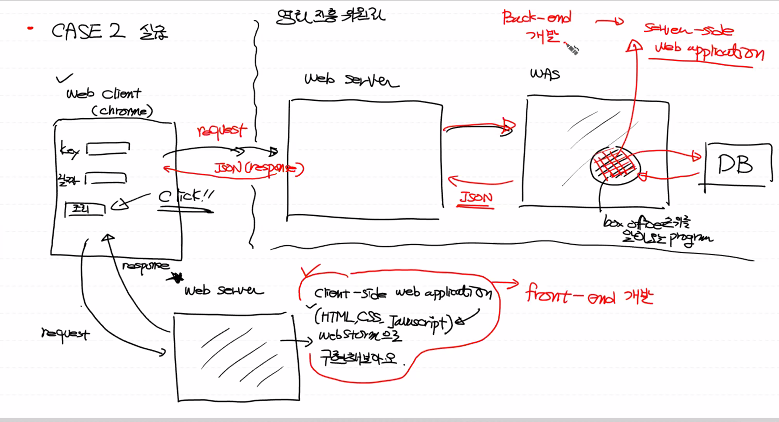 CASE 2 실습
영화진흥위원회
Back-end
개발
server-side
web application
Web client
(chrome)
Web server
WAS
key
날짜
조회
Click!!
request
JSON(response)
JSON
DB
box office
program
response
request
Web server
client-side web application
(HTML, CSS, Javascript)
WebStorm으로
구현해보아요.
front-end 개발